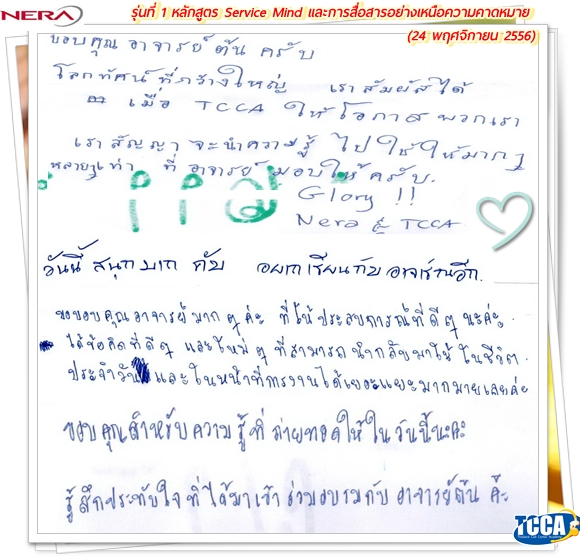 NERA
รุ่นที่ 1 หลักสูตร Service Mind และการสื่อสารอย่างเหนือความคาดหมาย
(24 พฤศจิกายน 2556)
ขอบคุณ อาจารย์ต้น ครับ
โลกทัศน์ที่กว้างใหญ่ เราสัมผัสได้
เมื่อ TCCA ให้โอกาสพวกเรา
เราสัญญา จะนำความรู้ ไปใช้ให้มากๆ
หลายๆเท่า ที่อาจารย์มอบให้ครับ.
Glory !!
Nera & TCCA
วันนี้ สนุกมาก ครับ อยากเรียนกับอาจารย์อีก.
ขอขอบคุณอาจารย์มากๆค่ะ ที่ให้ประสบการณ์ที่ดีๆนะค่ะ.
ได้ข้อคิดที่ดีๆ และใหม่ๆที่สามารถนำกลับมาใช้ในชีวิต.
ประจำวัน และในหน้าที่การงานได้เยอะแยะมากมายเลยค่ะ
ขอบคุณสำหรับความรู้ที่ถ่ายทอดให้ในวันนี้นะคะ
รู้สึกประทับใจที่ได้มาเข้าร่วมอบรมกับอาจารย์ต้น ค่ะ
TCCA